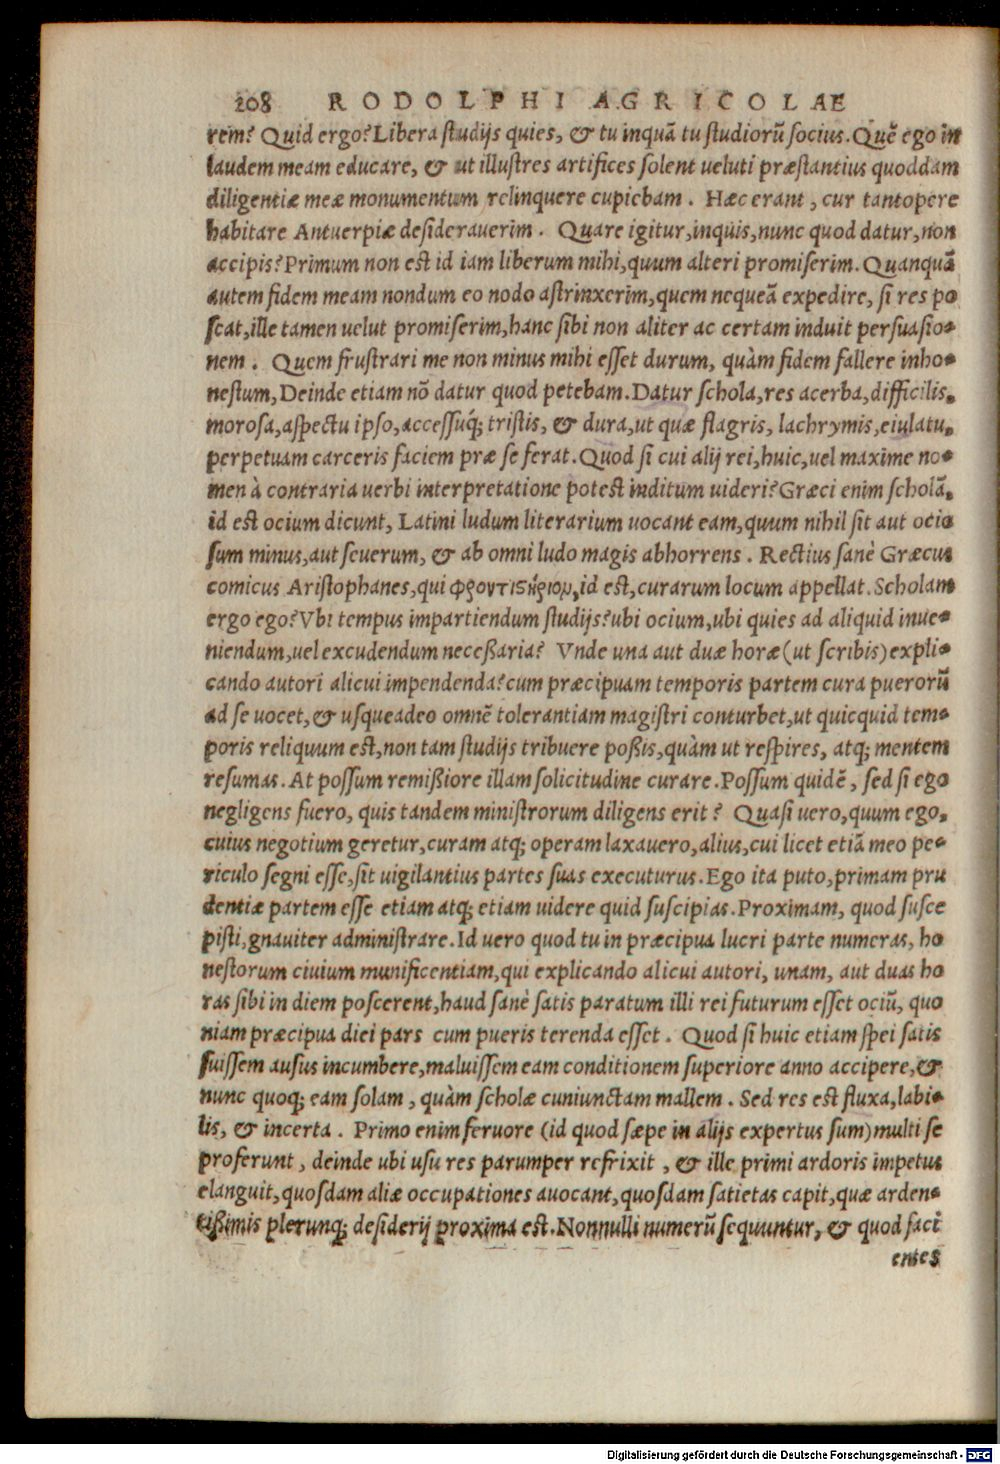 208 RODOLPHI AGRICOLAE
rem? Quid ergo? Libera studijs quies, & tu inquã tu studiorũ socius. Quẽ ego in
laudem meam educare, & ut illustres artifices solent ueluti præstantius quoddam
diligentiæ meæ monumentum relinquere cupiebam. Hæc erant, cur tantopere
habitare Antuerpiæ desiderauerim. Quare igitur, inquis, nunc quod datur, non
accipis? Primum non est id iam liberum mihi, quum alteri promiserim. Quanquã
autem fidem meam nondum eo nodo astrinxerim, quem nequeã expedire, si res po
scat, ille tamen uelut promiserim, hanc sibi non aliter ac certam induit persuasio-
nem. Quem frustrari me non minus mihi esset durum, quàm fidem fallere inho-
nestum, Deinde etiam nõ datur quod petebam. Datur schola, res acerba, difficilis,
morosa, aspectu ipso, accessuq; tristis, & dura, ut quæ flagris, lachrymis, eiulatu,
perpetuam carceris faciem præ se ferat. Quod si cui alij rei, huic, uel maxime no-
men à contraria uerbi interpretatione potest inditum uideri? Græci enim scholã,
id est ocium dicunt, Latini ludum literarium uocant eam, quum nihil sit aut ocio
sum minus, aut seuerum, & ab omni ludo magis abhorrens. Rectius sanè Græcus
comicus Aristophanes, qui φρουτιϛήριομ, id est, curarum locum appellat. Scholam
ergo ego? Vbi tempus impartiendum studijs? ubi ocium, ubi quies ad aliquid inue-
niendum, uel excudendum necessaria? Vnde una aut duæ horæ (ut scribis) expli-
cando autori alicui impendenda? cum præcipuam temporis partem cura puerorũ
ad se uocet, & usqueadeo omnẽ tolerantiam magistri conturbet, ut quicquid tem-
poris reliquum est, non tam studijs tribuere possis, quàm ut respires, atq; mentem
resumas. At possum remissiore illam solicitudine curare. Possum quidẽ, sed si ego
negligens fuero, quis tandem ministrorum diligens erit? Quasi uero, quum ego,
cuius negotium geretur, curam atq; operam laxauero, alius, cui licet etiã meo pe-
riculo segni esse, sit uigilantius partes suas executurus. Ego ita puto, primam pru
dentiæ partem esse etiam atq; etiam uidere quid suscipias. Proximam, quod susce
pisti, gnauiter administrare. Id uero quod tu in præcipua lucri parte numeras, ho
nestorum ciuium munificentiam, qui explicando alicui autori, unam, aut duas ho
ras sibi in diem poscerent, haud sanè satis paratum illi rei futurum esset ociũ, quo
niam præcipua diei pars cum pueris terenda esset. Quod si huic etiam spei satis
fuissem ausus incumbere, maluissem eam conditionem superiore anno accipere, &
nunc quoq; eam solam, quàm scholæ cuniunctam mallem. Sed res est fluxa, labi-
lis, & incerta. Primo enim feruore (id quod sæpe in alijs expertus sum) multi se
proferunt, deinde ubi usu res parumper refrixit, & ille primi ardoris impetus
elanguit, quosdam aliæ occupationes auocant, quosdam satietas capit, quæ arden-
tissimis plerunq; desiderij proxima est. Nonnulli numerũ sequuntur, & quod faci
entes
Digitalisierung gefördert durch die Deutsche Forschungsgemeinschaft - DFG